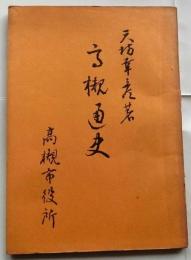 天坊幸彦著
高槻通史
高槻市役所